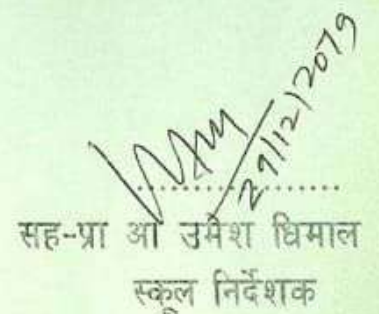 29/12/2079
....................
सह-प्रा आ उमेश धिमाल
स्कूल निर्देशक